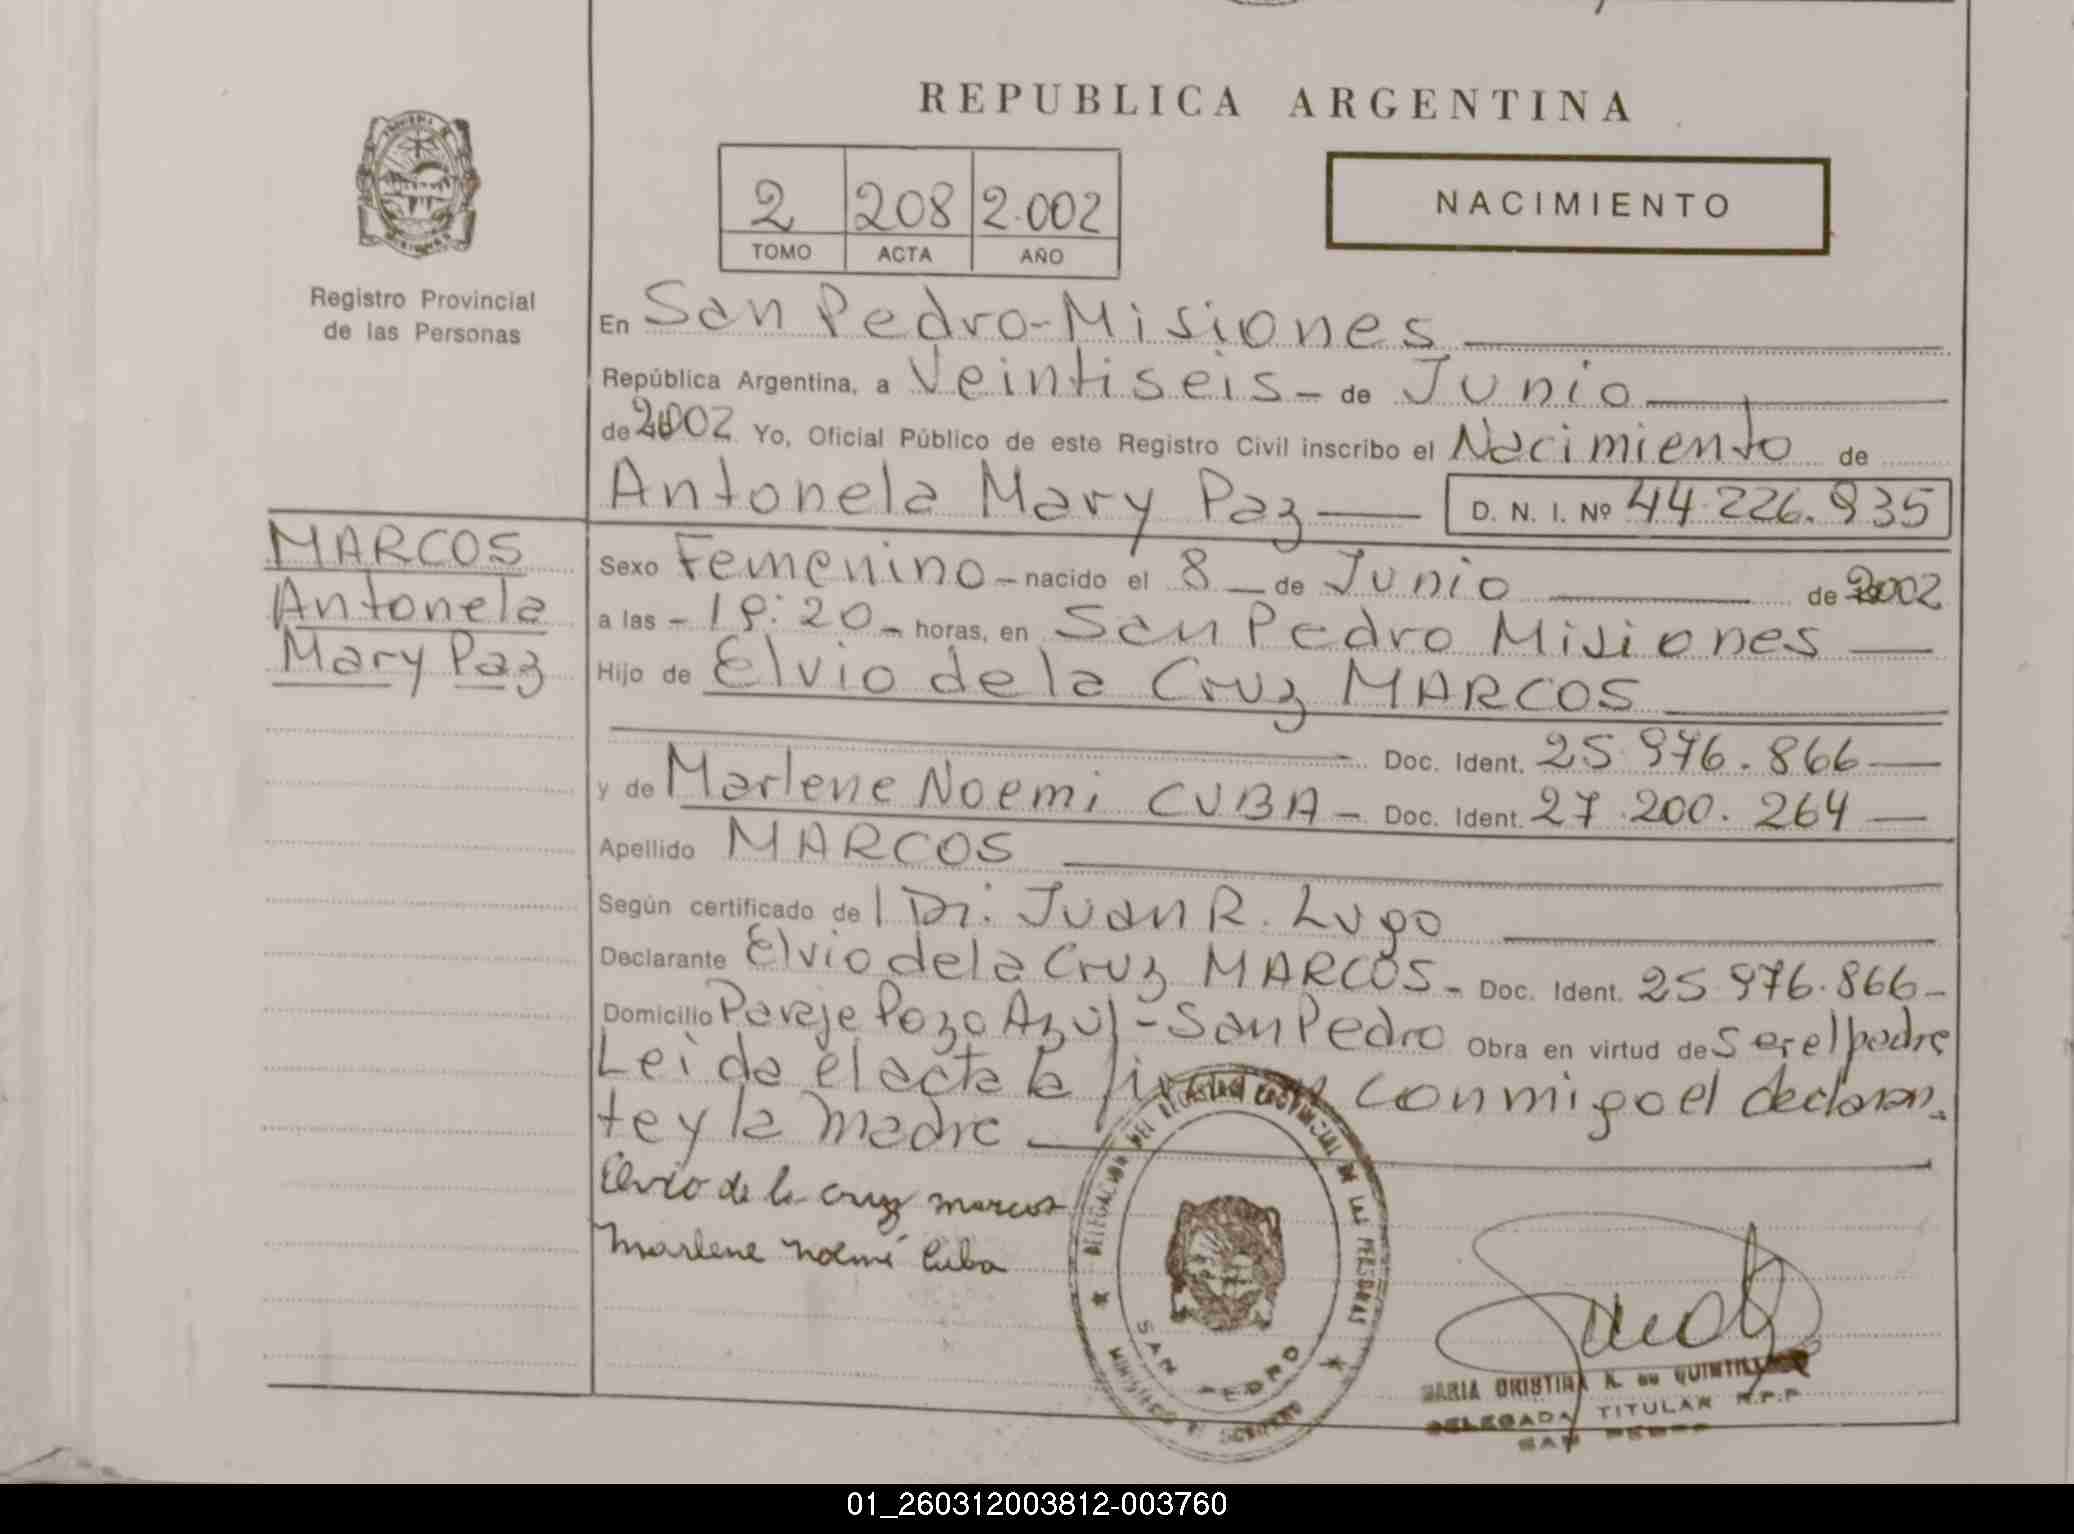 REPUBLICA ARGENTINA
2 208 2.002
TOMO ACTA AÑO
NACIMIENTO
Registro Provincial
de las Personas
En San Pedro-Misiones
República Argentina, a Veintiseis - de Junio
de 2002 Yo, Oficial Público de este Registro Civil inscribo el Nacimiento de
Antonela Mary Paz D. N. I. Nº 44.226.935
MARCOS
Antonela
Mary Paz
Sexo Femenino - nacido el 8 - de Junio de 2002
a las - 19:20 - horas, en San Pedro Misiones
Hijo de Elvio de la Cruz MARCOS
Doc. Ident. 25.976.866
y de Marlene Noemi CUBA - Doc. Ident. 27.200.264
Apellido MARCOS
Según certificado de l Dr. Juan R. Lugo
Declarante Elvio de la Cruz MARCOS - Doc. Ident. 25.976.866 -
Domicilio Paraje Pozo Azul - San Pedro Obra en virtud de Ser el padre
Leida el acta la conmigo el declaran-
te y la madre
Elvio de la cruz marcos
Marlene Noemi Cuba
DELEGACION DEL REGISTRO PROVINCIAL DE LAS PERSONAS
SAN PEDRO
MINISTERIO DE GOBIERNO
MARIA CRISTINA A. de
DELEGADA TITULAR R.P.P
SAN PEDRO
01_260312003812-003760